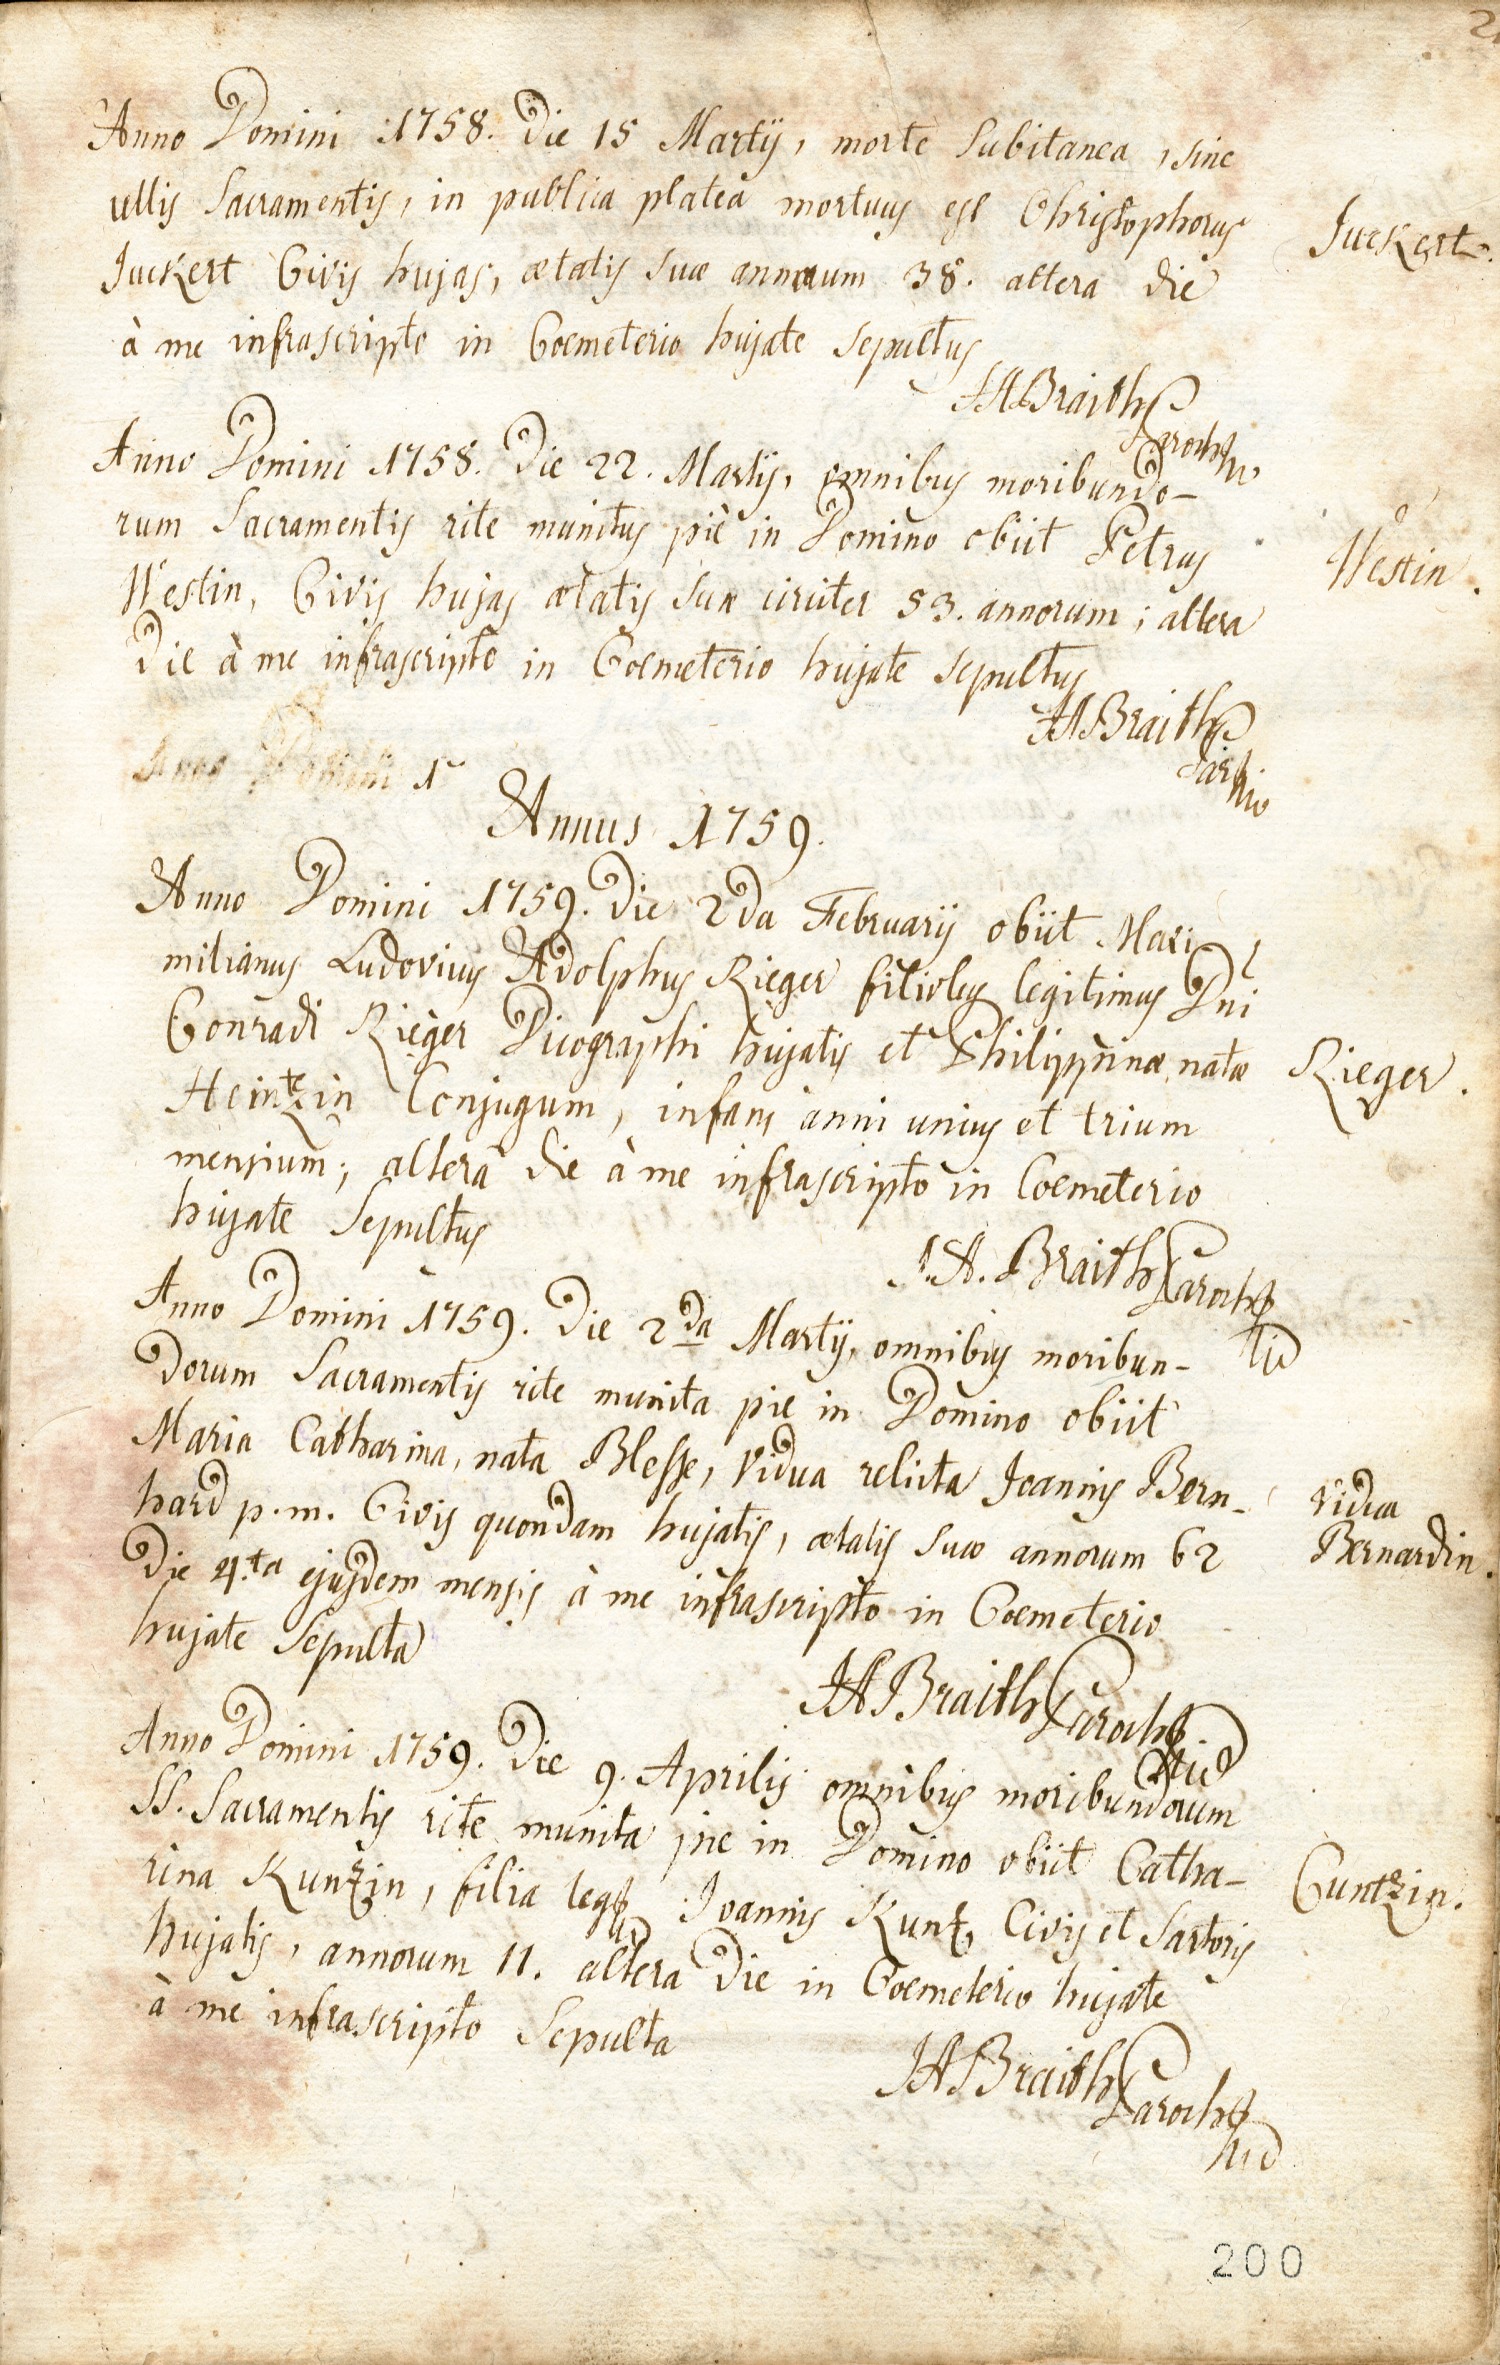 Anno Domini 1758. die 15 Martij, morte subitanea, sine
ullis Sacramentis, in publica platea mortuus est Christophorus
Juckert Civis hujas, ætatis suæ annorum 38. altera die
à me infrascripto in Coemeterio hujate sepultus
Juckert.
JABraith
Parochus
Anno Domini 1758. Die 22. Martij, omnibus moribundo-
rum Sacramentis rite munitus piè in Domino obiit Petrus
Westin, Civis hujas ætatis suæ circiter 53. annorum; altera
die à me infrascripto in Coemeterio hujate sepultus
Westin.
JABraith
Anno Domini 1
Annus 1759.
Anno Domini 1759. die 2da Februarij obiit Maxi
milianus Ludovicus Adolphus Rieger filiolus legitimus Dni
Conradi Rieger Dicographi hujatis et Philippinæ natæ
Heintzin Conjugum, infans anni unius et trium
mensium; altera die à me infrascripto in Coemeterio
hujate Sepultus
Rieger.
J.A. Braith Parochus
Anno Domini 1759. die 2da Martij, omnibus moribun-
dorum Sacramentis rite munita pie in Domino obiit
Maria Catharina, nata Blesse, vidua relicta Joannis Bern-
hard p.m. Civis quondam hujatis, ætatis suæ annorum 62
die 4.ta ejusdem mensis à me infrascripto in Coemeterio
hujate Sepulta
vidua
Bernardin.
JABraith Parochus
Anno Domini 1759. die 9. Aprilis omnibus moribundorum
SS. Sacramentis rite munita pie in Domino obiit Catha-
rina Kuntzin, filia leg. Joannis Kuntz Civis et Sartoris
hujatis, annorum 11. altera die in Coemeterio hujate
à me infrascripto Sepulta
Cuntzin.
JABraith Parochus
200